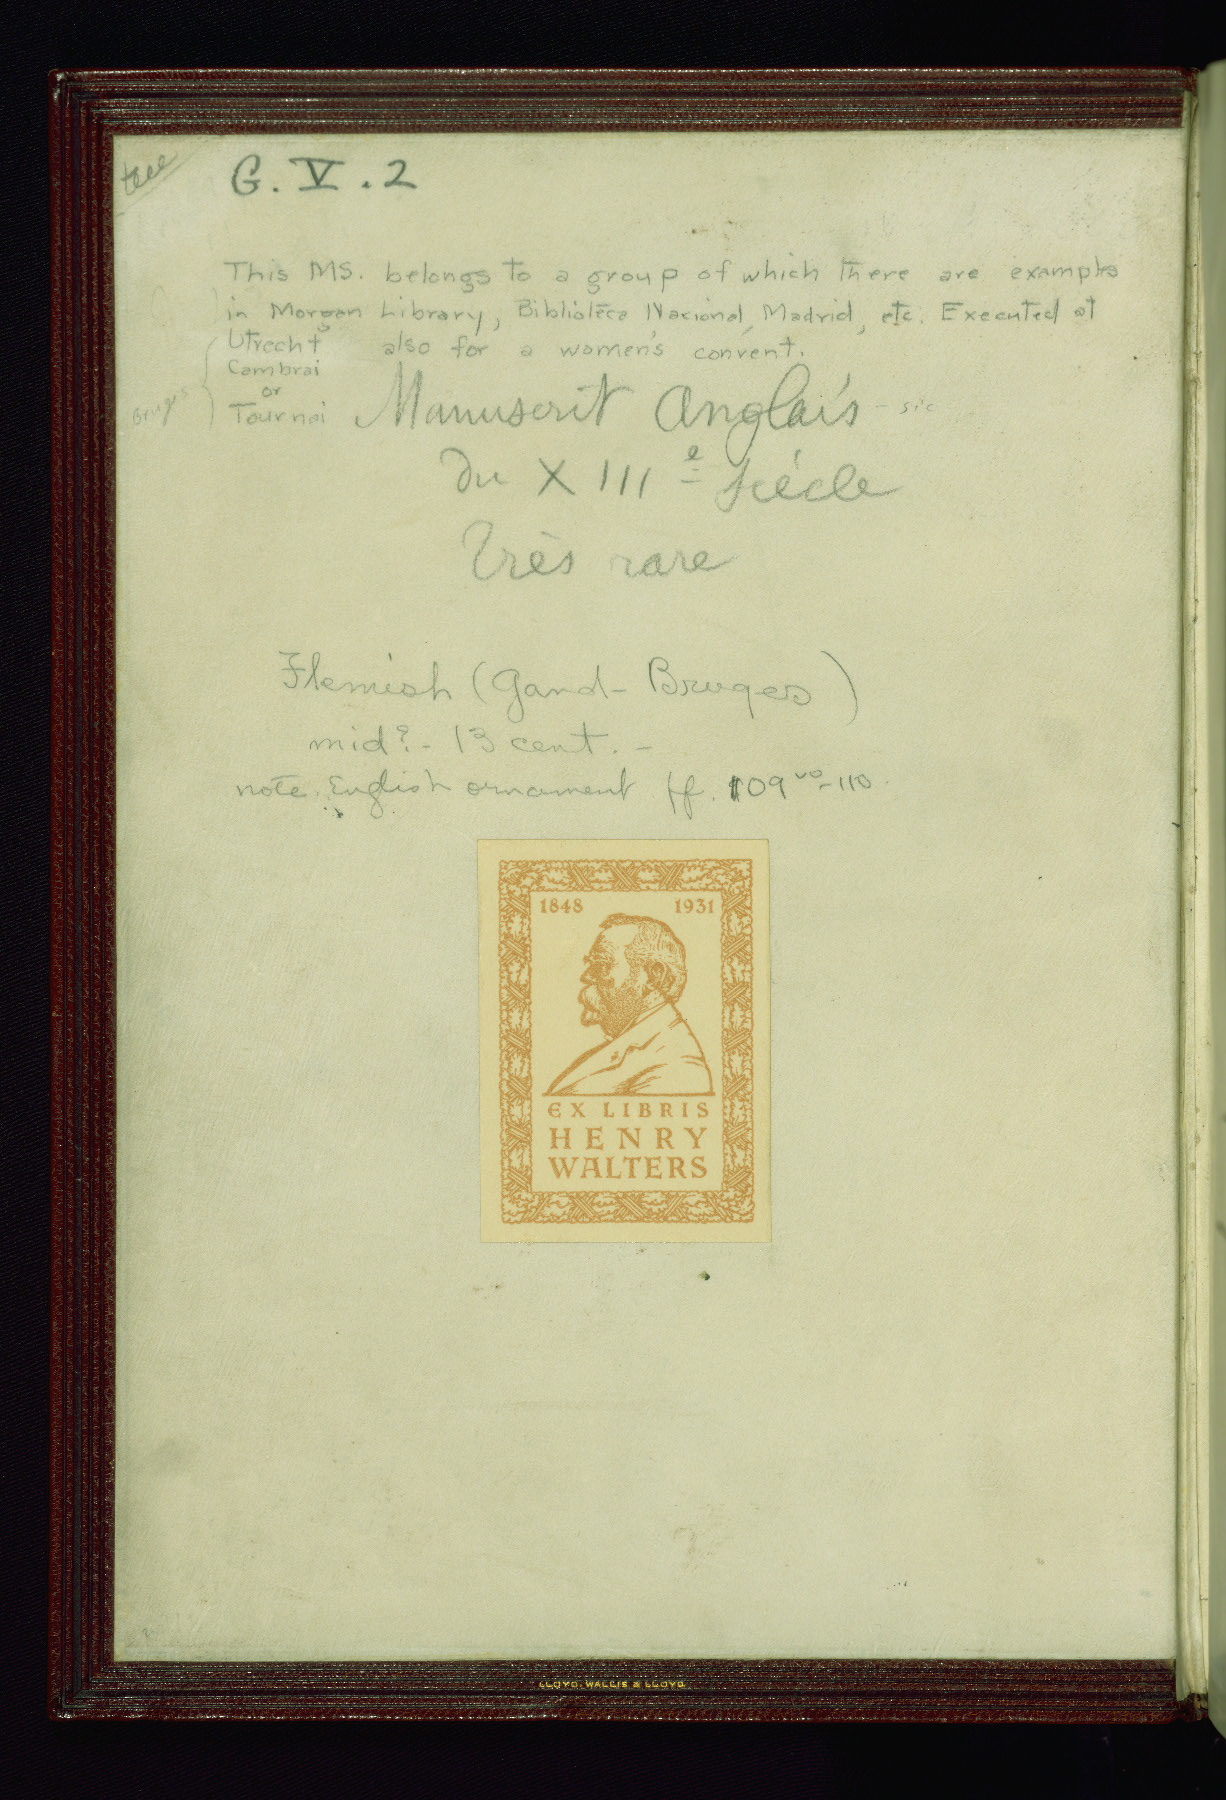 G. V. 2
This MS. belongs to a group of which there are examples
in Morgan Library, Biblioteca Nacional, Madrid, etc. Executed at
Utrecht also for a women's convent.
Cambrai
or
Bruges Tournai
Manuscrit Anglais - sic
du XIIIe Siécle
Très rare
Flemish (Gand-Bruges)
mid? - 13 cent. -
note English ornament ff. 109vo-110.
1848 1931
EX LIBRIS
HENRY
WALTERS
LLOYD, WALLIS & LLOYD